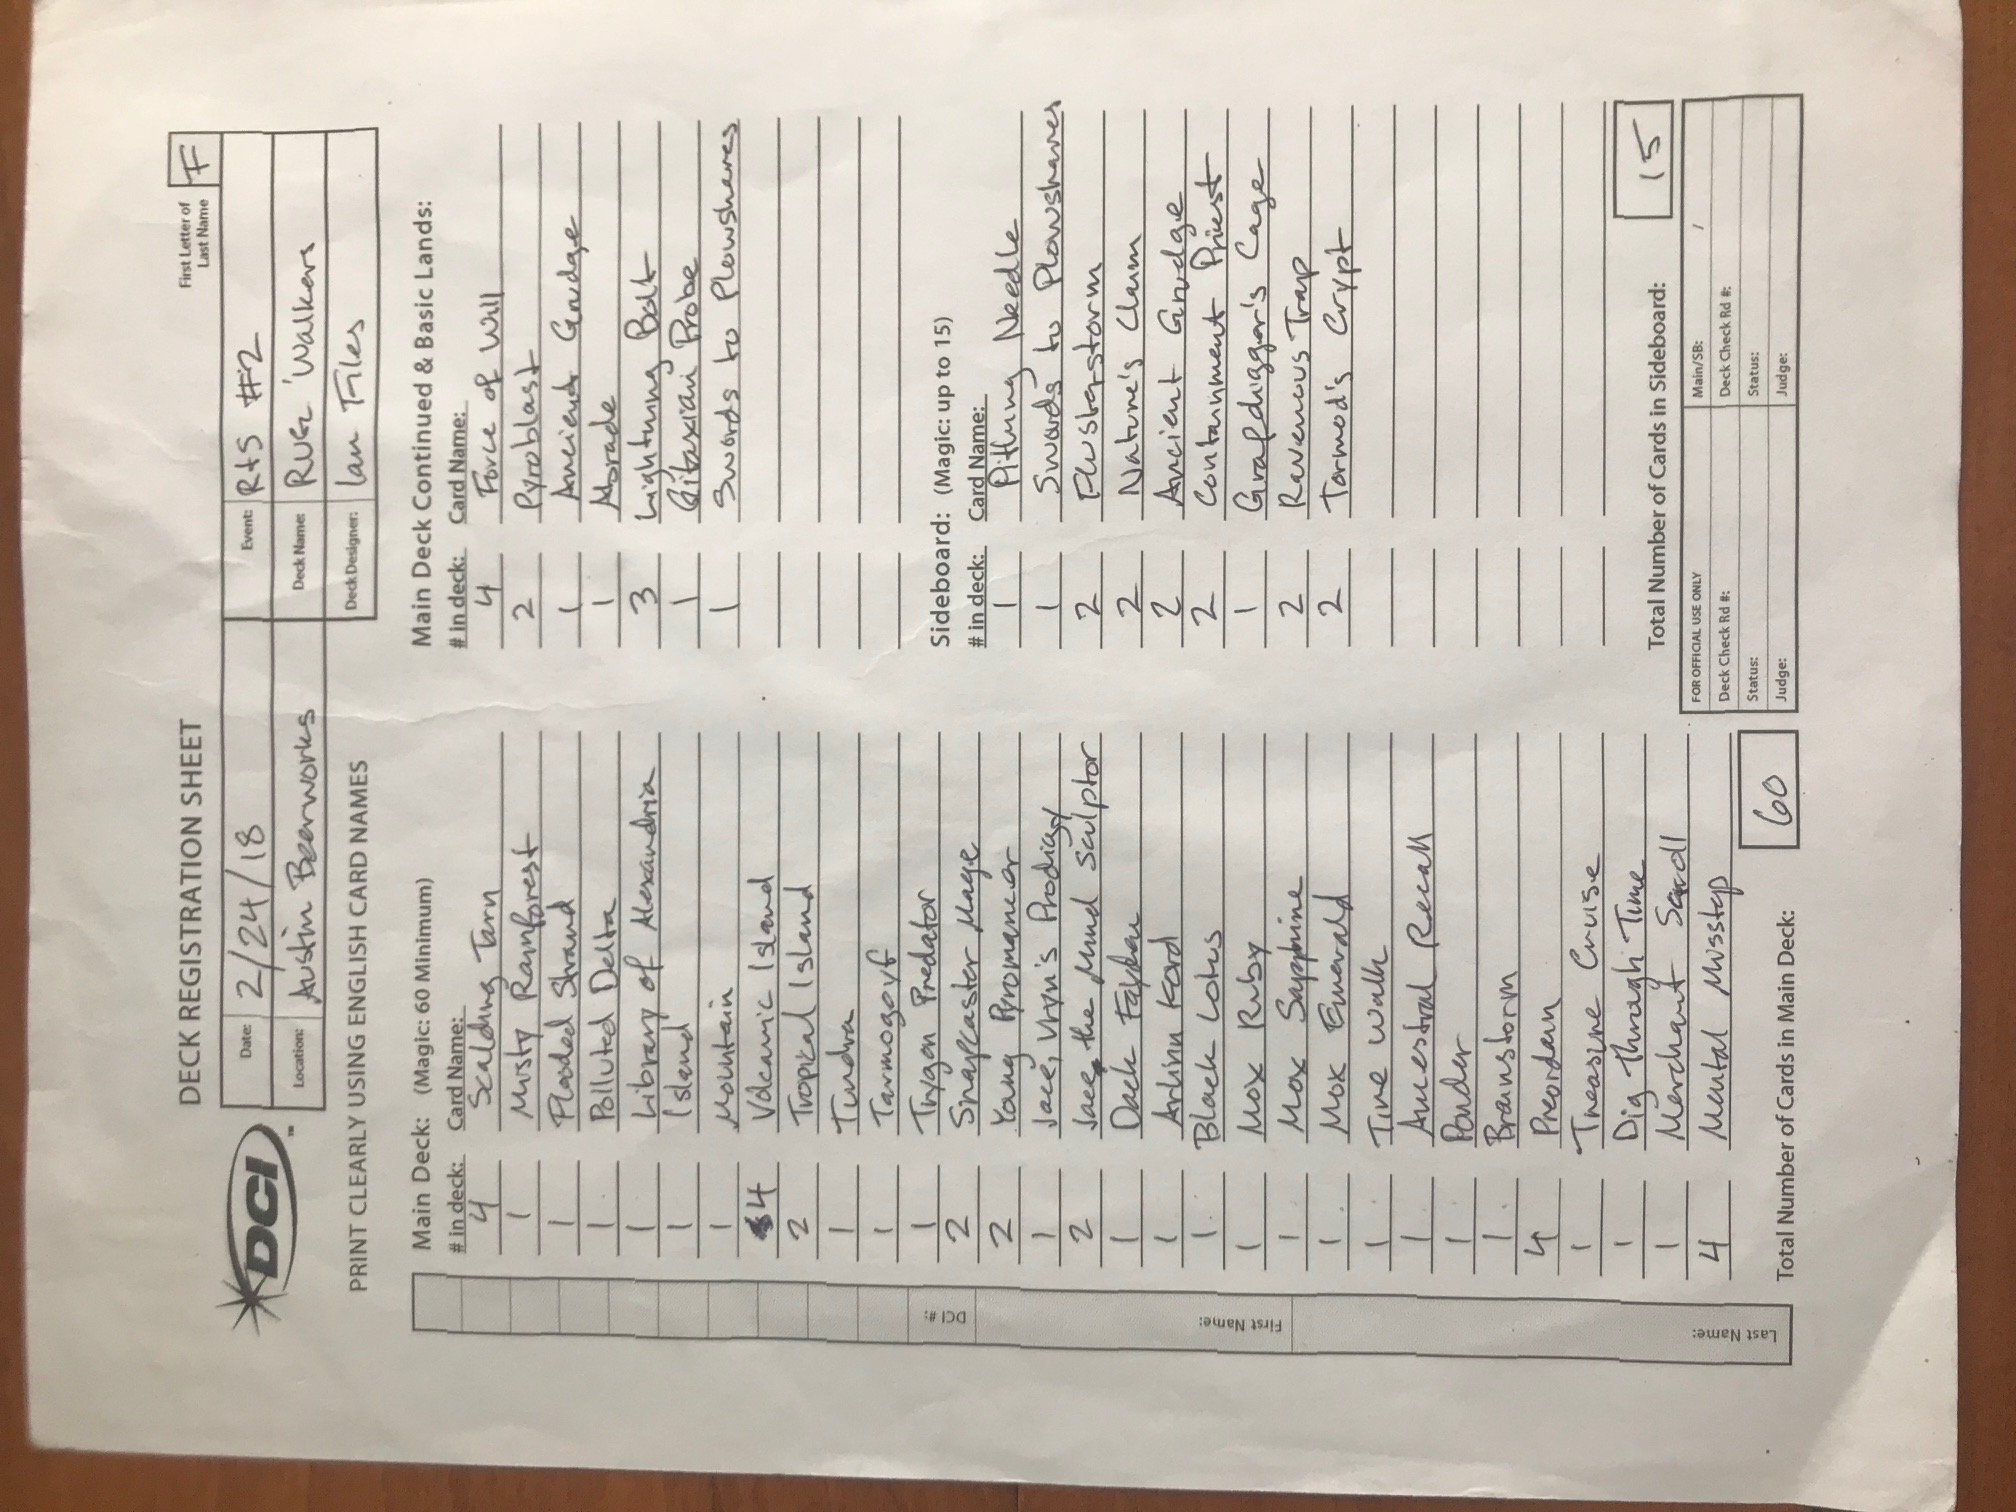 DECK REGISTRATION SHEET
First Letter of Last Name F
DCI ™
Date: 2/24/18
Event: R+S #2
Location: Austin Beerworks
Deck Name: RUG 'Walkers
Deck Designer: Ian Files
PRINT CLEARLY USING ENGLISH CARD NAMES
DCI #:
First Name:
Last Name:
Main Deck: (Magic: 60 Minimum)
# in deck: Card Name:
4 Scalding Tarn
1 Misty Rainforest
1 Flooded Strand
1 Polluted Delta
1 Library of Alexandria
1 Island
1 Mountain
4 Volcanic Island
2 Tropical Island
1 Tundra
1 Tarmogoyf
1 Trygon Predator
2 Snapcaster Mage
2 Young Pyromancer
1 Jace, Vryn's Prodigy
2 Jace, the Mind Sculptor
1 Dack Fayden
1 Arlinn Kord
1 Black Lotus
1 Mox Ruby
1 Mox Sapphire
1 Mox Emerald
1 Time Walk
1 Ancestral Recall
1 Ponder
1 Brainstorm
4 Preordain
1 Treasure Cruise
1 Dig Through Time
1 Merchant Scroll
4 Mental Misstep
Total Number of Cards in Main Deck: 60
Main Deck Continued & Basic Lands:
# in deck: Card Name:
4 Force of Will
2 Pyroblast
1 Ancient Grudge
1 Abrade
3 Lightning Bolt
1 Gitaxian Probe
1 Swords to Plowshares
Sideboard: (Magic: up to 15)
# in deck: Card Name:
1 Pithing Needle
1 Swords to Plowshares
2 Flusterstorm
2 Nature's Claim
2 Ancient Grudge
2 Containment Priest
1 Grafdigger's Cage
2 Ravenous Trap
2 Tormod's Crypt
Total Number of Cards in Sideboard: 15
FOR OFFICIAL USE ONLY
Main/SB: /
Deck Check Rd #:
Deck Check Rd #:
Status:
Status:
Judge:
Judge: